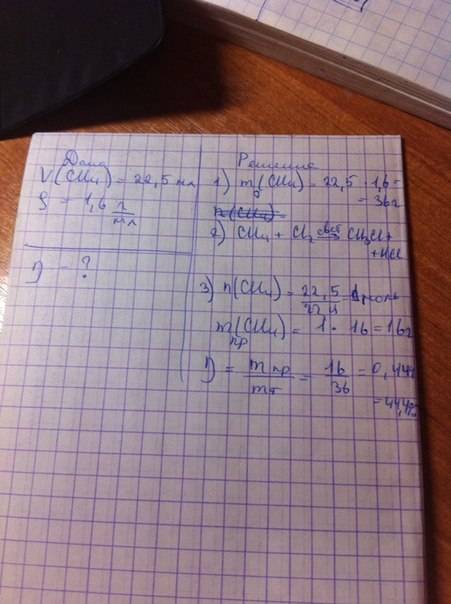 Дано
V(CH₄) = 22,5 мл
ρ = 1,6 г/мл
η - ?
Решение
1) m(CH₄) = 22,5 · 1,6 =
= 36г
n(CH₄)
2) CH₄ + Cl₂ свет→ CH₃Cl +
+ HCl
3) n(CH₄) = 22,5/22,4 = 1 моль
mпр(CH₄) = 1 · 16 = 16г
η = mпр/mт = 16/36 = 0,444
= 44,4%